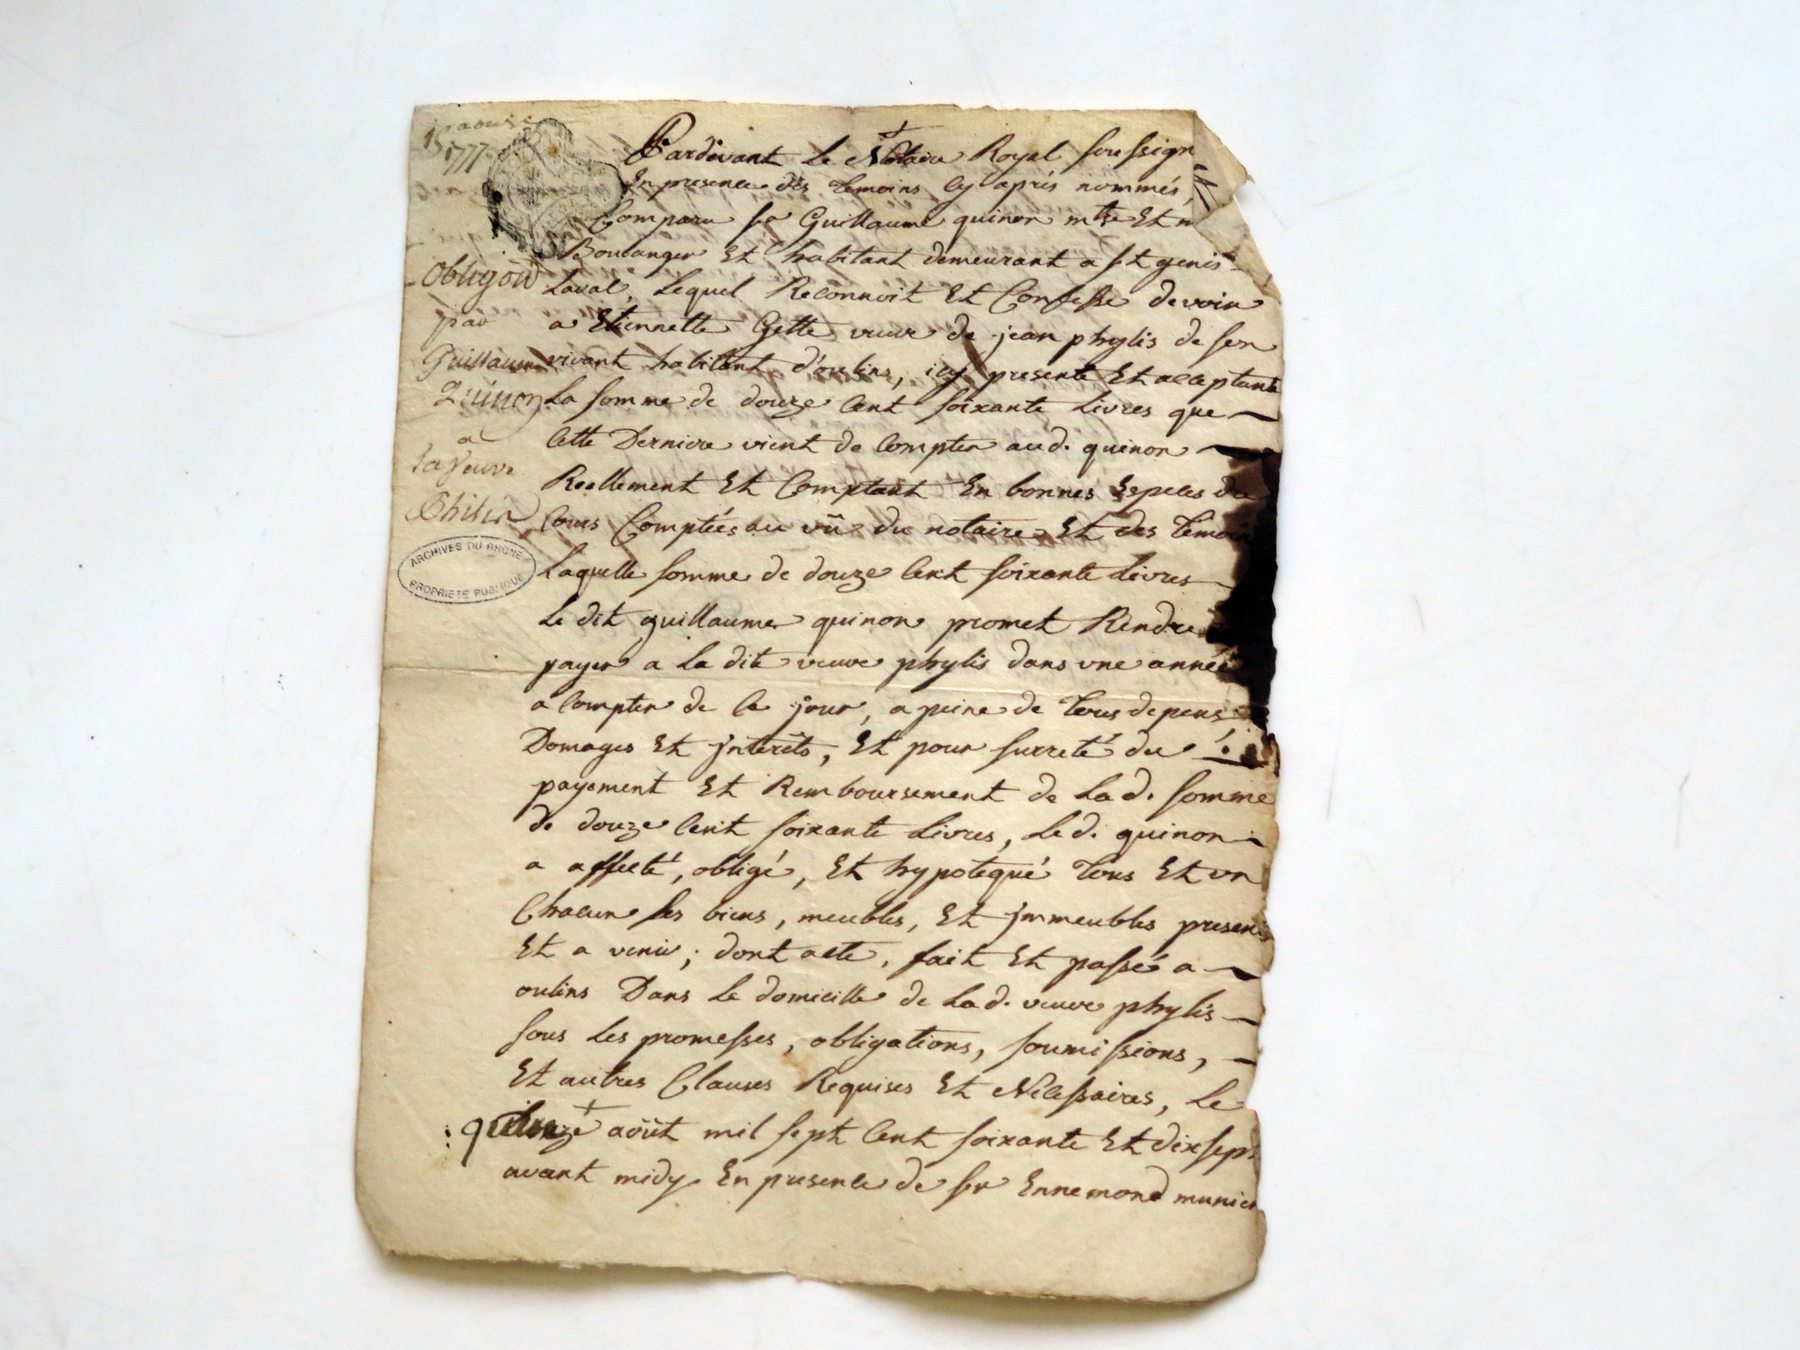 15 aoust
1777
Obligõn
par
Guillaume
Quinon
a
la veuve
Philis
ARCHIVES DU RHONE
PROPRIETE PUBLIQUE
Pardevant Le Notaire Royal soussign
En presence des temoins cy après nommés,
Comparu sr Guillaume quinon mtre Et m
Boulanger Et habitant demeurant a st genis
Laval, Lequel Reconnoit Et Confesse devoir
a Etiennette Gette veuve de jean phylis de son
vivant habitant d'oulins, icy presente Et acceptante
La somme de douze cent soixante Livres que
cette Derniere vient de compter aud. quinon
Reellement Et Comptant En bonnes Especes du
cours Comptées au vû du notaire Et des temoin
Laquelle somme de douze cent soixante Livres
Le dit guillaume quinon promet Rendre
payer a La dite veuve phylis dans une année
a compter de ce jour, a peine de tous depens
Domages Et jnterêts, Et pour surreté du
payement Et Remboursement de La d. somme
de douze cent soixante Livres, Le d. quinon
a affecté, obligé, Et hypotequé tous Et un
Chacun ses biens, meubles, Et jmmeubles presens
Et a venir; dont acte, fait Et passé a
oulins Dans Le domicille de La d. veuve phylis
sous Les promesses, obligations, soumissions,
Et autres Clauses Requises Et Necessaires, Le
quinze août mil sept cent soixante Et dix sept
avant midy En presence de sr Ennemond munier